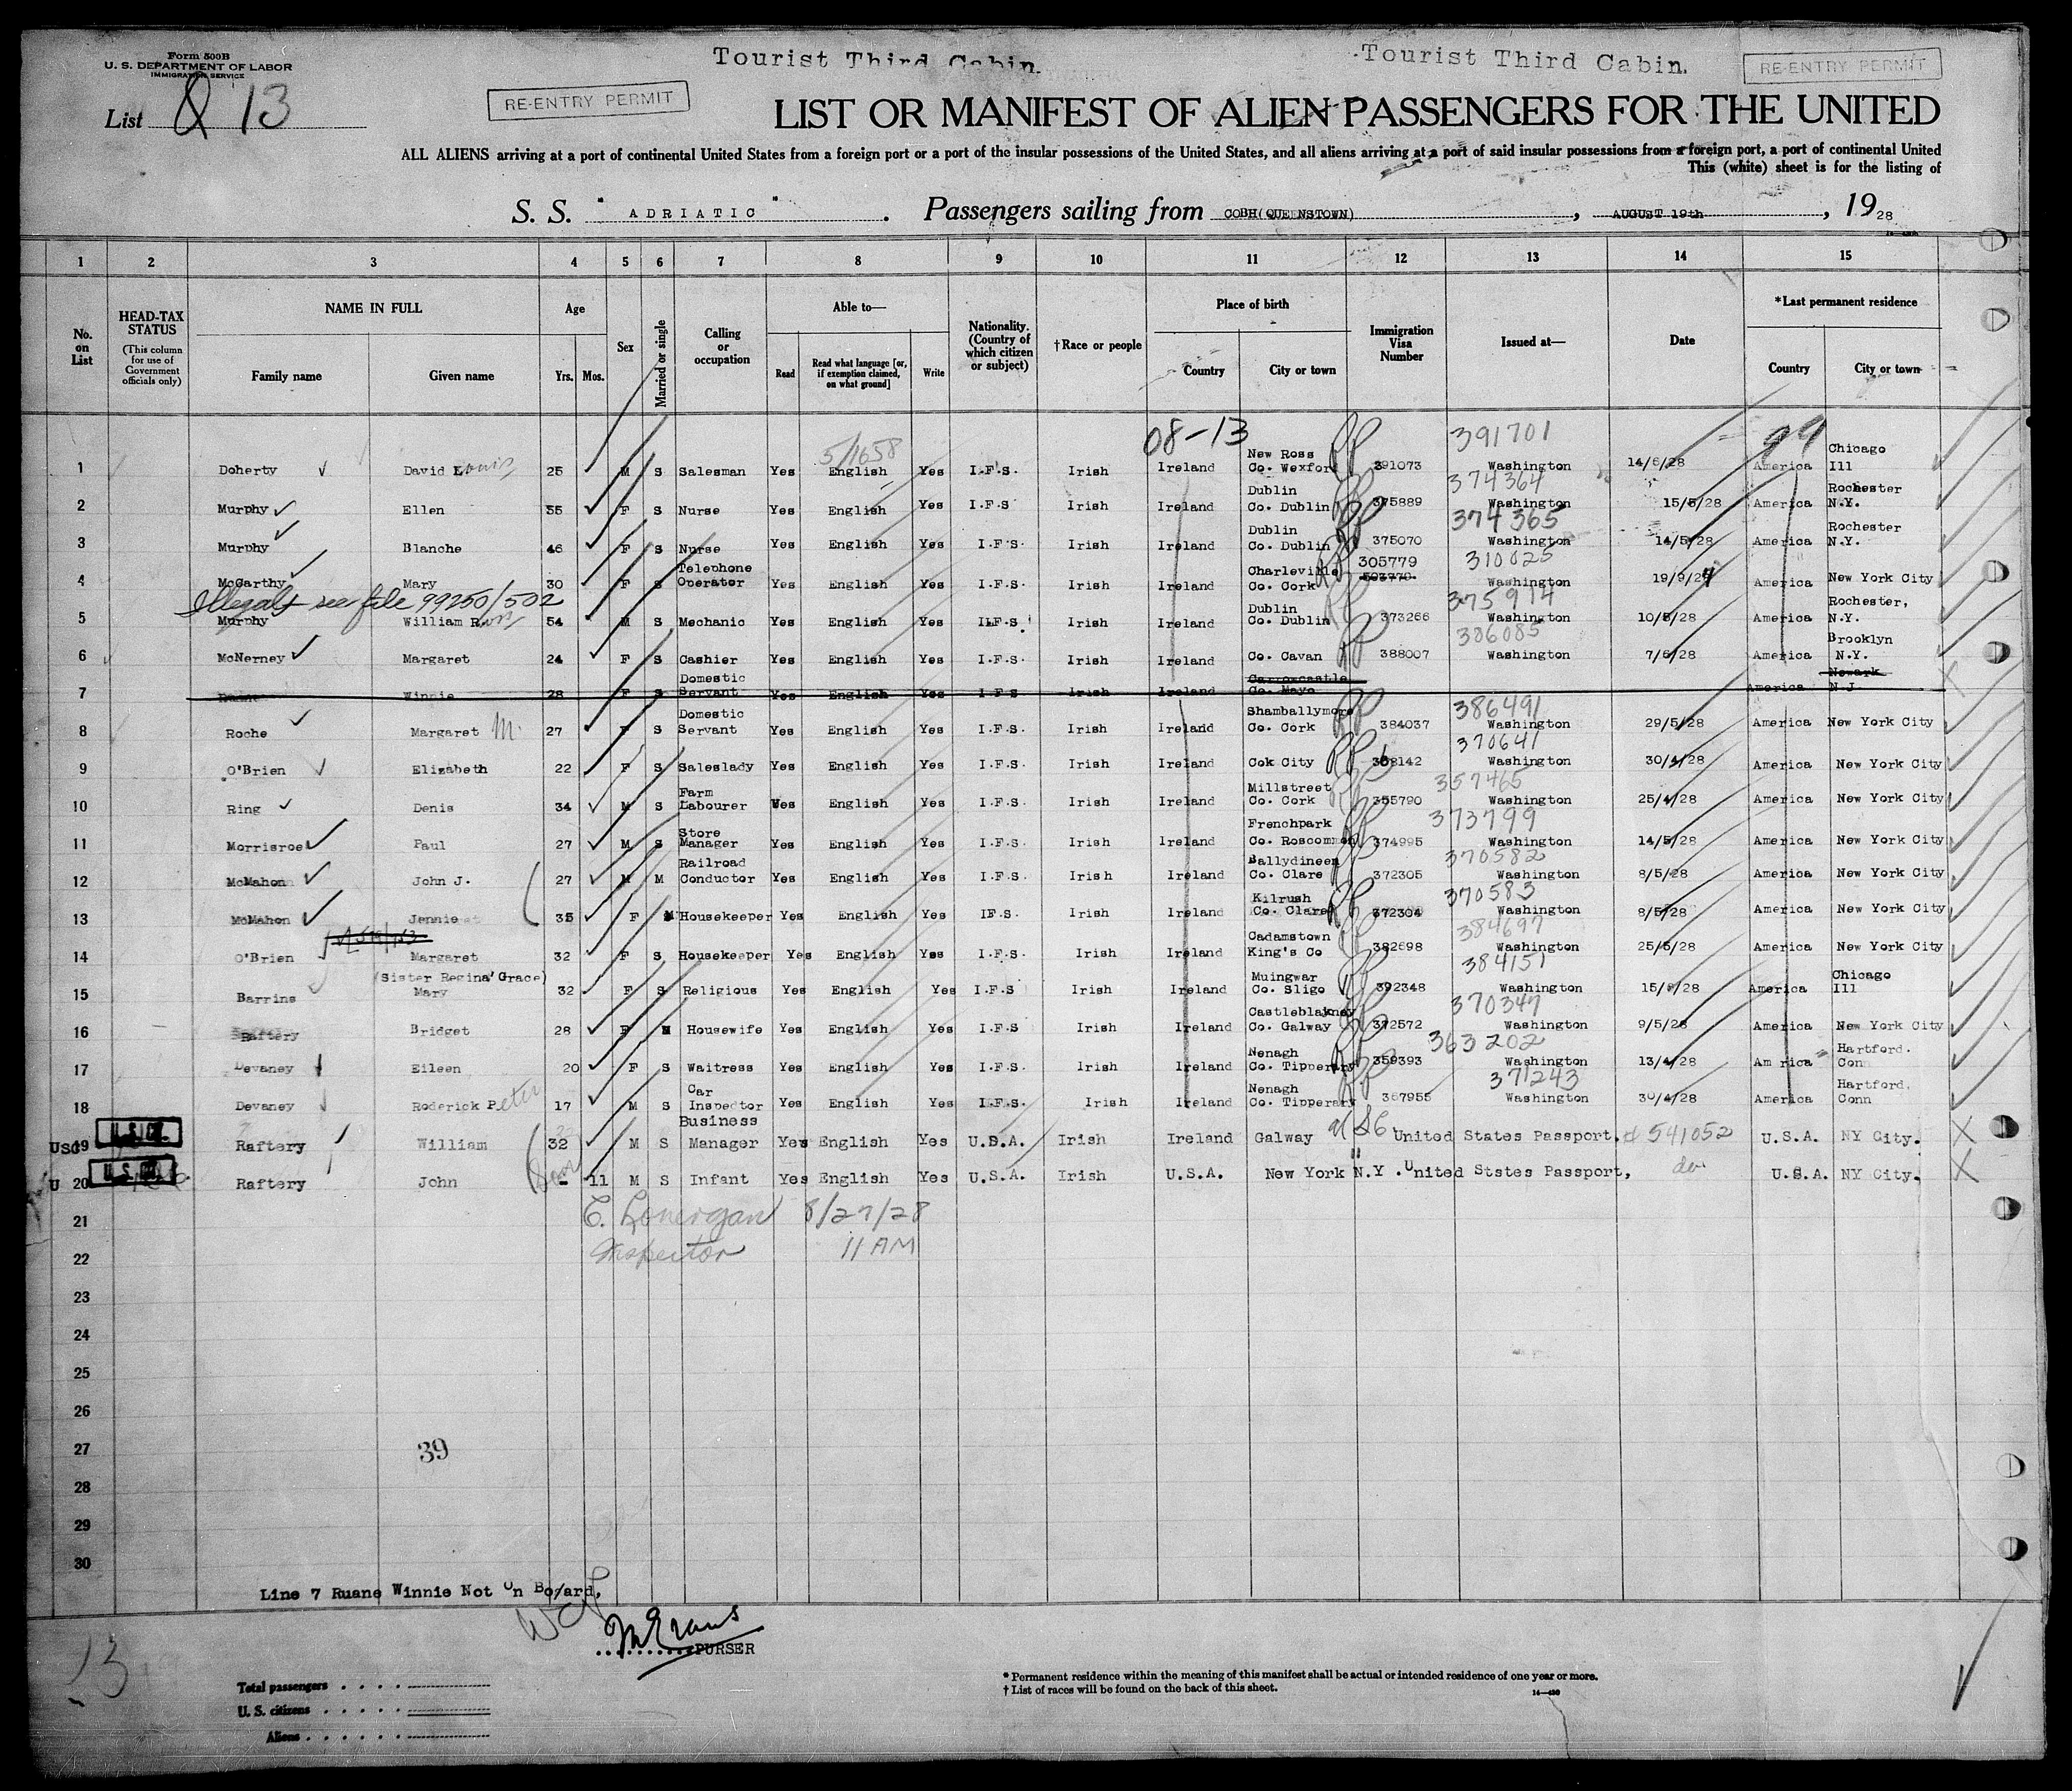 Form 500B
U. S. DEPARTMENT OF LABOR
IMMIGRATION SERVICE
List 13
Tourist Third Cabin.
Tourist Third Cabin.
RE-ENTRY PERMIT
RE-ENTRY PERMIT
LIST OR MANIFEST OF ALIEN PASSENGERS FOR THE UNITED
ALL ALIENS arriving at a port of continental United States from a foreign port or a port of the insular possessions of the United States, and all aliens arriving at a port of said insular possessions from a foreign port, a port of continental United
This (white) sheet is for the listing of
S. S. " ADRIATIC " . Passengers sailing from COBH(QUEENSTOWN) , AUGUST 19th , 19 28
1 2 3 4 5 6 7 8 9 10 11 12 13 14 15
No. on List
HEAD-TAX STATUS (This column for use of Government officials only)
NAME IN FULL
Family name Given name
Age
Yrs. Mos.
Sex
Married or single
Calling or occupation
Able to—
Read Read what language [or, if exemption claimed, on what ground] Write
Nationality. (Country of which citizen or subject)
†Race or people
Place of birth
Country City or town
Immigration Visa Number
Issued at—
Date
*Last permanent residence
Country City or town
08-13 391701 99
5/1658
1 Doherty David Louis 25 M S Salesman Yes English Yes I.F.S. Irish Ireland New Ross Co. Wexford 391073 Washington 14/6/28 America Chicago Ill
374364
2 Murphy Ellen 35 F S Nurse Yes English Yes I.F.S Irish Ireland Dublin Co. Dublin 375889 Washington 15/5/28 America Rochester N.Y.
374365
3 Murphy Blanche 46 F S Nurse Yes English Yes I.F.S. Irish Ireland Dublin Co. Dublin 375070 Washington 14/5/28 America Rochester N.Y.
310025
4 McCarthy Mary 30 F S Telephone Operator Yes English Yes I.F.S. Irish Ireland Charleville Co. Cork 305779 Washington 19/9/27 America New York City
Illegal see file 99250/502
375914
5 Murphy William 54 M S Mechanic Yes English Yes I.F.S. Irish Ireland Dublin Co. Dublin 373266 Washington 10/5/28 America Rochester, N.Y.
386085
6 McNerney Margaret 24 F S Cashier Yes English Yes I.F.S. Irish Ireland Co. Cavan 388007 Washington 7/6/28 America Brooklyn N.Y.
7 Winnie 28 F S Domestic Servant Yes English Yes I F S Irish Ireland Carrowcastle Co. Mayo America Newark N.J.
386491
8 Roche Margaret M. 27 F S Domestic Servant Yes English Yes I.F.S. Irish Ireland Shamballymore Co. Cork 384037 Washington 29/5/28 America New York City
370641
9 O'Brien Elizabeth 22 F S Saleslady Yes English Yes I.F.S. Irish Ireland Cok City 368142 Washington 30/4/28 America New York City
357465
10 Ring Denis 34 M S Farm Labourer Yes English Yes I.F.S. Irish Ireland Millstreet Co. Cork 355790 Washington 25/4/28 America New York City
373799
11 Morrisroe Paul 27 M S Store Manager Yes English Yes I.F.S. Irish Ireland Frenchpark Co. Roscommon 374995 Washington 14/5/28 America New York City
370582
12 McMahon John J. 27 M M Railroad Conductor Yes English Yes I.F.S. Irish Ireland Ballydineen Co. Clare 372305 Washington 8/5/28 America New York City
370583
13 McMahon Jennie 35 F M Housekeeper Yes English Yes IF.S. Irish Ireland Kilrush Co. Clare 372304 Washington 8/5/28 America New York City
384697
14 O'Brien Margaret 32 F S Housekeeper Yes English Yes I.F.S. Irish Ireland Cadamstown King's Co 382698 Washington 25/5/28 America New York City
384151
15 Barrins (Sister Regina Grace) Mary 32 F S Religious Yes English Yes I.F.S Irish Ireland Muingwar Co. Sligo 392348 Washington 15/6/28 America Chicago Ill
370347
16 Raftery Bridget 28 F M Housewife Yes English Yes I.F.S Irish Ireland Castleblakney Co. Galway 372572 Washington 9/5/28 America New York City
363202
17 Devaney Eileen 20 F S Waitress Yes English Yes I.F.S. Irish Ireland Nenagh Co. Tipperary 359393 Washington 13/4/28 Am rica Hartford. Conn
371243
18 Devaney Roderick Peter 17 M S Car Inspector Yes English Yes I.F.S. Irish Ireland Nenagh Co. Tipperary 367955 Washington 30/4/28 America Hartford. Conn
USC 19 Raftery William 32 M S Business Manager Yes English Yes U.S.A. Irish Ireland Galway United States Passport. # 541052 U.S.A. NY City.
U 20 Raftery John 11 M S Infant Yes English Yes U.S.A. Irish U.S.A. New York N.Y. United Ststes Passport, do U.S.A. NY City.
21 C. Lonergan 8/27/28
22 Inspector 11 AM
23
24
25
26
27 39
28
29
30
Line 7 Ruane Winnie Not On Bo/ard,
M Evans
PURSER
13
Total passengers
U. S. citizens
Aliens
* Permanent residence within the meaning of this manifest shall be actual or intended residence of one year or more.
† List of races will be found on the back of this sheet.
14—430